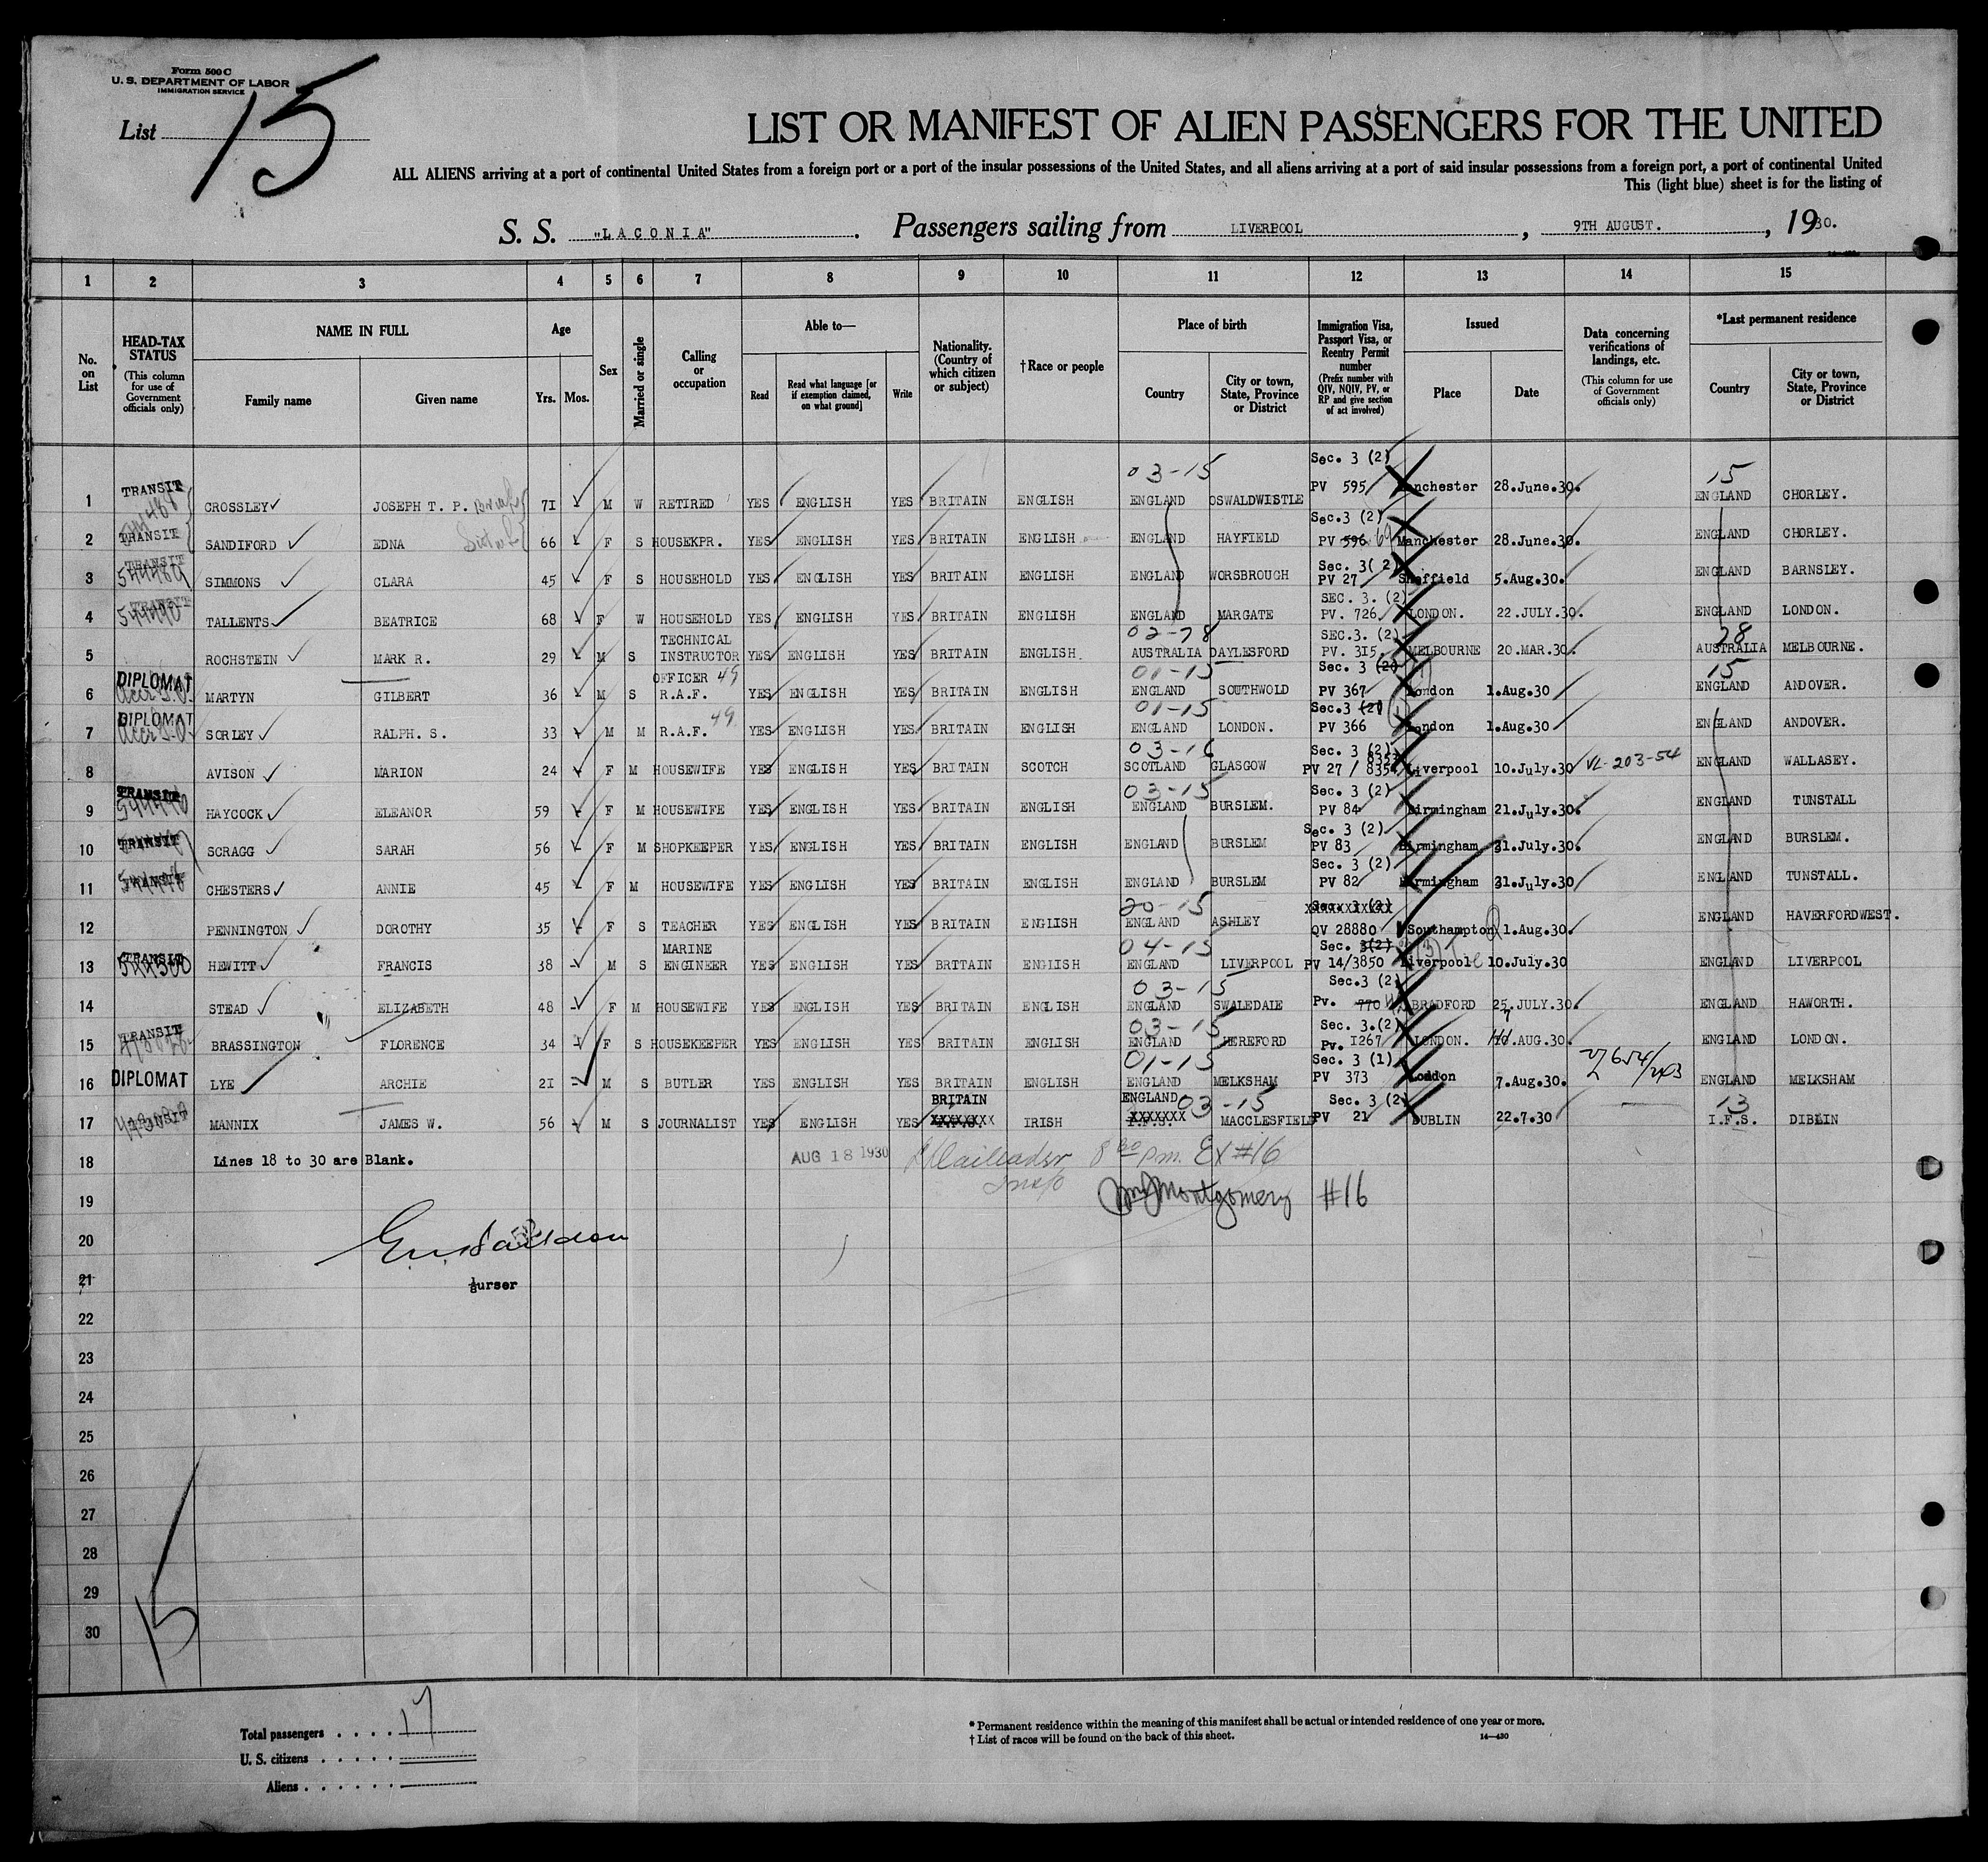 Form 500 C
U. S. DEPARTMENT OF LABOR
IMMIGRATION SERVICE
List 15
LIST OR MANIFEST OF ALIEN PASSENGERS FOR THE UNITED
ALL ALIENS arriving at a port of continental United States from a foreign port or a port of the insular possessions of the United States, and all aliens arriving at a port of said insular possessions from a foreign port, a port of continental United
This (light blue) sheet is for the listing of
S. S. "LACONIA". Passengers sailing from LIVERPOOL, 9TH AUGUST., 1930.
1 2 3 4 5 6 7 8 9 10 11 12 13 14 15
No. on List
HEAD-TAX STATUS (This column for use of Government officials only)
NAME IN FULL Family name Given name
Age Yrs. Mos.
Sex
Married or single
Calling or occupation
Able to— Read Read what language [or if exemption claimed, on what ground] Write
Nationality. (Country of which citizen or subject)
† Race or people
Place of birth Country City or town, State, Province or District
Immigration Visa, Passport Visa, or Reentry Permit number (Prefix number with QIV, NQIV, PV, or RP and give section of act involved)
Issued Place Date
Data concerning verifications of landings, etc. (This column for use of Government officials only)
*Last permanent residence Country City or town, State, Province or District
1 TRANSIT CROSSLEY JOSEPH T. P. 71 M W RETIRED YES ENGLISH YES BRITAIN ENGLISH 03-15 ENGLAND OSWALDWISTLE Sec. 3 (2) PV 595 Manchester 28.June.30. 15 ENGLAND CHORLEY.
2 TRANSIT SANDIFORD EDNA 66 F S HOUSEKPR. YES ENGLISH YES BRITAIN ENGLISH ENGLAND HAYFIELD Sec.3 (2) PV 596 Manchester 28.June.30. ENGLAND CHORLEY.
3 TRANSIT 544489 SIMMONS CLARA 45 F S HOUSEHOLD YES ENGLISH YES BRITAIN ENGLISH ENGLAND WORSBROUGH Sec. 3(2) PV 27 Sheffield 5.Aug.30. ENGLAND BARNSLEY.
4 544490 TALLENTS BEATRICE 68 F W HOUSEHOLD YES ENGLISH YES BRITAIN ENGLISH ENGLAND MARGATE SEC. 3. (2) PV. 726 LONDON. 22.JULY.30. ENGLAND LONDON.
5 ROCHSTEIN MARK R. 29 M S TECHNICAL INSTRUCTOR YES ENGLISH YES BRITAIN ENGLISH 02-78 AUSTRALIA DAYLESFORD SEC.3. (2) PV. 315. MELBOURNE 20.MAR.30. 78 AUSTRALIA MELBOURNE.
6 DIPLOMAT MARTYN GILBERT 36 M S OFFICER 49 R.A.F. YES ENGLISH YES BRITAIN ENGLISH 01-15 ENGLAND SOUTHWOLD Sec. 3 (2) PV 367 London 1.Aug.30 15 ENGLAND ANDOVER.
7 DIPLOMAT SORLEY RALPH. S. 33 M M R.A.F. 49. YES ENGLISH YES BRITAIN ENGLISH 01-15 ENGLAND LONDON. Sec.3 (2) PV 366 London 1.Aug.30 ENGLAND ANDOVER.
8 AVISON MARION 24 F M HOUSEWIFE YES ENGLISH YES BRITAIN SCOTCH 03-16 SCOTLAND GLASGOW Sec. 3 (2) 8353 PV 27 / 8354 Liverpool 10.July.30 VL-203-54 ENGLAND WALLASEY.
9 TRANSIT HAYCOCK ELEANOR 59 F M HOUSEWIFE YES ENGLISH YES BRITAIN ENGLISH 03-15 ENGLAND BURSLEM. Sec. 3 (2) PV 84 Birmingham 21.July.30. ENGLAND TUNSTALL
10 TRANSIT SCRAGG SARAH 56 F M SHOPKEEPER YES ENGLISH YES BRITAIN ENGLISH ENGLAND BURSLEM Sec. 3 (2) PV 83 Birmingham 21.July.30. ENGLAND BURSLEM.
11 TRANSIT CHESTERS ANNIE 45 F M HOUSEWIFE YES ENGLISH YES BRITAIN ENGLISH ENGLAND BURSLEM Sec. 3 (2) PV 82 Birmingham 21.July.30 ENGLAND TUNSTALL.
12 PENNINGTON DOROTHY 35 F S TEACHER YES ENGLISH YES BRITAIN ENGLISH 20-15 ENGLAND ASHLEY Sec. 3 (2) QV 28880 Southampton 1.Aug.30. ENGLAND HAVERFORDWEST.
13 TRANSIT 544500 HEWITT FRANCIS 38 M S MARINE ENGINEER YES ENGLISH YES BRITAIN ENGLISH 04-15 ENGLAND LIVERPOOL Sec. 3(2) (3) PV 14/3850 Liverpool 10.July.30 ENGLAND LIVERPOOL
14 STEAD ELIZABETH 48 F M HOUSEWIFE YES ENGLISH YES BRITAIN ENGLISH 03-15 ENGLAND SWALEDALE Sec.3 (2) Pv. 770 BRADFORD 25.JULY.30. ENGLAND HAWORTH.
15 TRANSIT BRASSINGTON FLORENCE 34 F S HOUSEKEEPER YES ENGLISH YES BRITAIN ENGLISH 03-15 ENGLAND HEREFORD Sec. 3.(2) Pv. 1267 LONDON. 7 AUG.30. ENGLAND LONDON.
16 DIPLOMAT LYE ARCHIE 21 M S BUTLER YES ENGLISH YES BRITAIN ENGLISH 01-15 ENGLAND MELKSHAM Sec. 3 (1) PV 373 London 7.Aug.30. ENGLAND MELKSHAM
17 TRANSIT MANNIX JAMES W. 56 M S JOURNALIST YES ENGLISH YES BRITAIN XXXXXXXX IRISH ENGLAND 03-15 XXXXXXX I.F.S. MACCLESFIELD Sec. 3 (2) PV 21 DUBLIN 22.7.30 13 I.F.S. DIBLIN
18 Lines 18 to 30 are Blank. AUG 18 1930 8 30 pm. Ex #16
19 Montgomery #16
20
21 Purser
22
23
24
25
26
27
28
29
30
15
Total passengers . . . . 17
U. S. citizens . . . . .
Aliens . . . . . .
* Permanent residence within the meaning of this manifest shall be actual or intended residence of one year or more.
† List of races will be found on the back of this sheet.
14—430